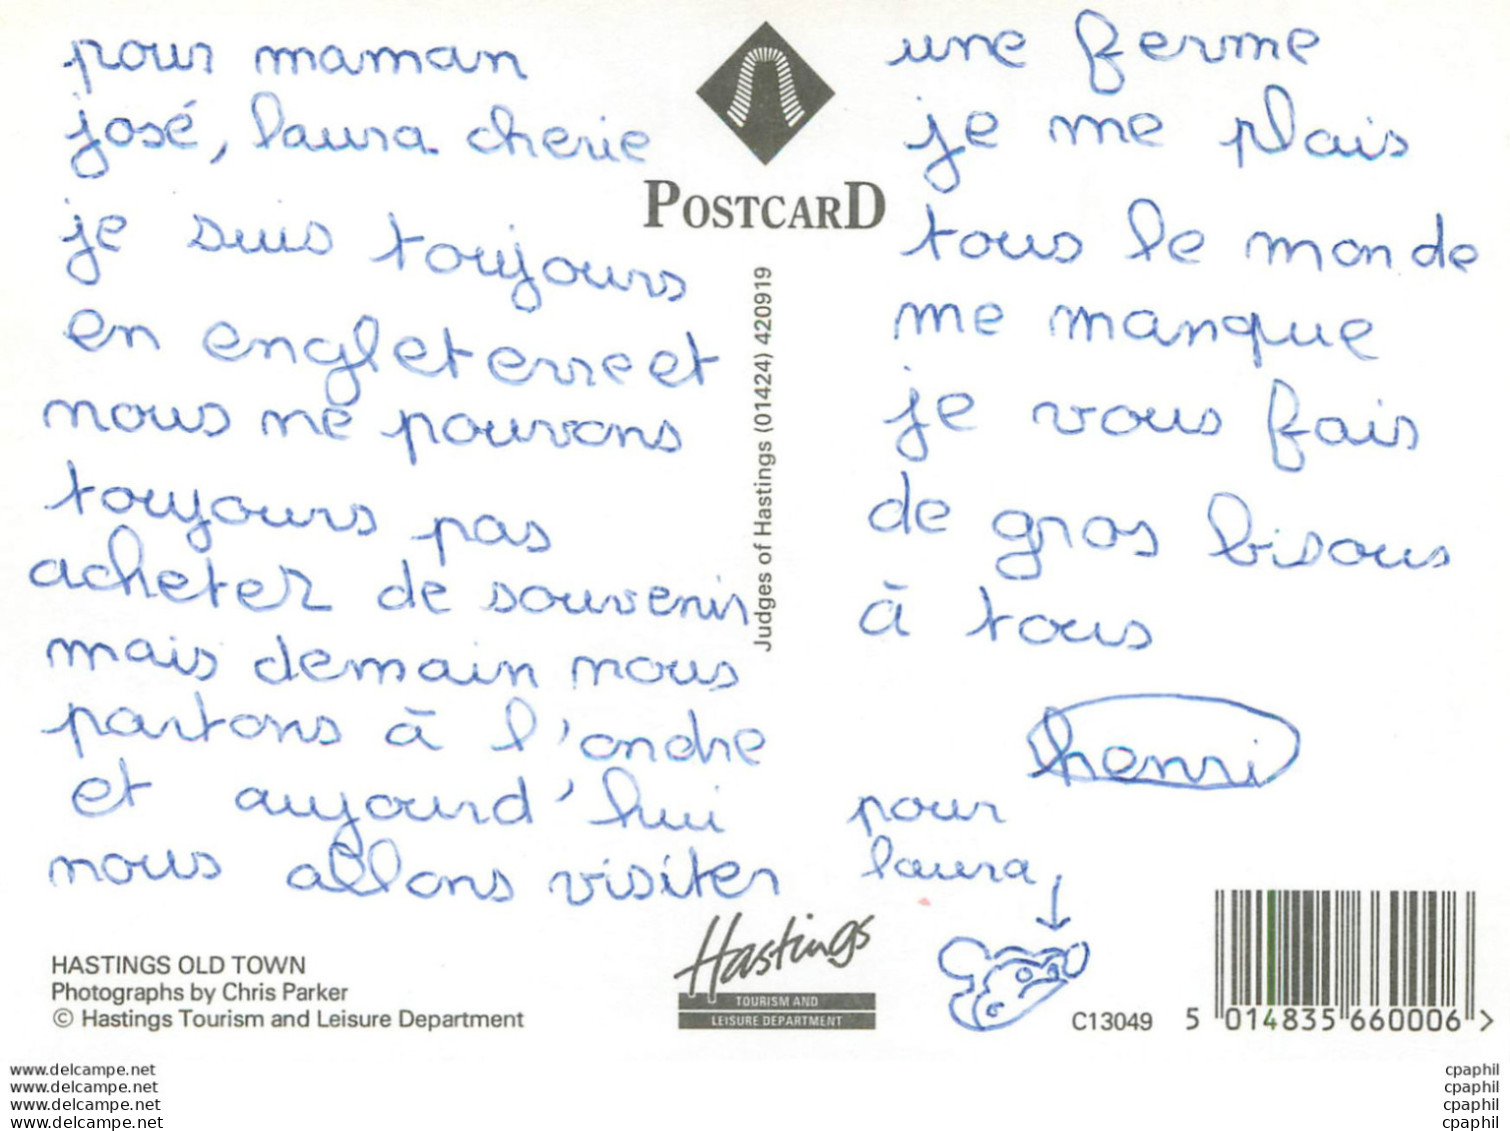 pour maman
josé, laura cherie
je suis toujours
en engleterre et
nous ne pouvons
toujours pas
acheter de souvenir
mais demain nous
partons à l'ondre
et aujourd'hui
nous allons visiter
POSTCARD
Judges of Hastings (01424) 420919
une ferme
je me plais
tous le monde
me manque
je vous fais
de gros bisous
à tous
henri
pour
laura
HASTINGS OLD TOWN
Photographs by Chris Parker
© Hastings Tourism and Leisure Department
Hastings
TOURISM AND
LEISURE DEPARTMENT
C13049
5 014835 660006 >
www.delcampe.net
www.delcampe.net
www.delcampe.net
www.delcampe.net
cpaphil
cpaphil
cpaphil
cpaphil